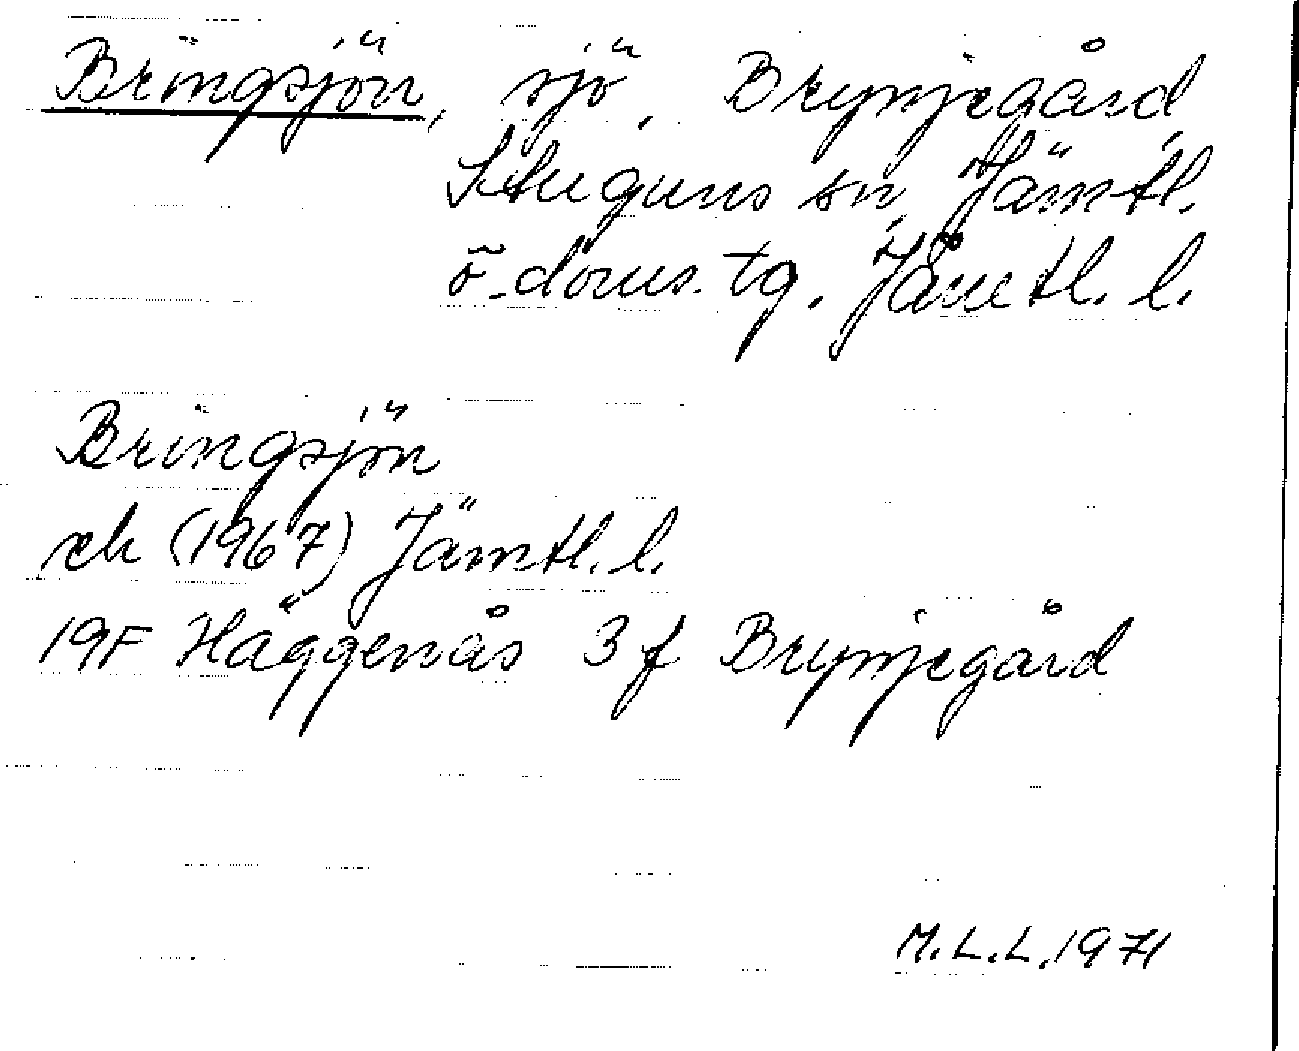 Bringsjön, sjö, Brynjegård,
Stuguns sn, Jämtl.
ö. doms. tg. Jämtl. l.
Bringsjön
ek (1967) Jämtl. l.
19F Häggenås 3f Brynjegård
M.L.L. 1971